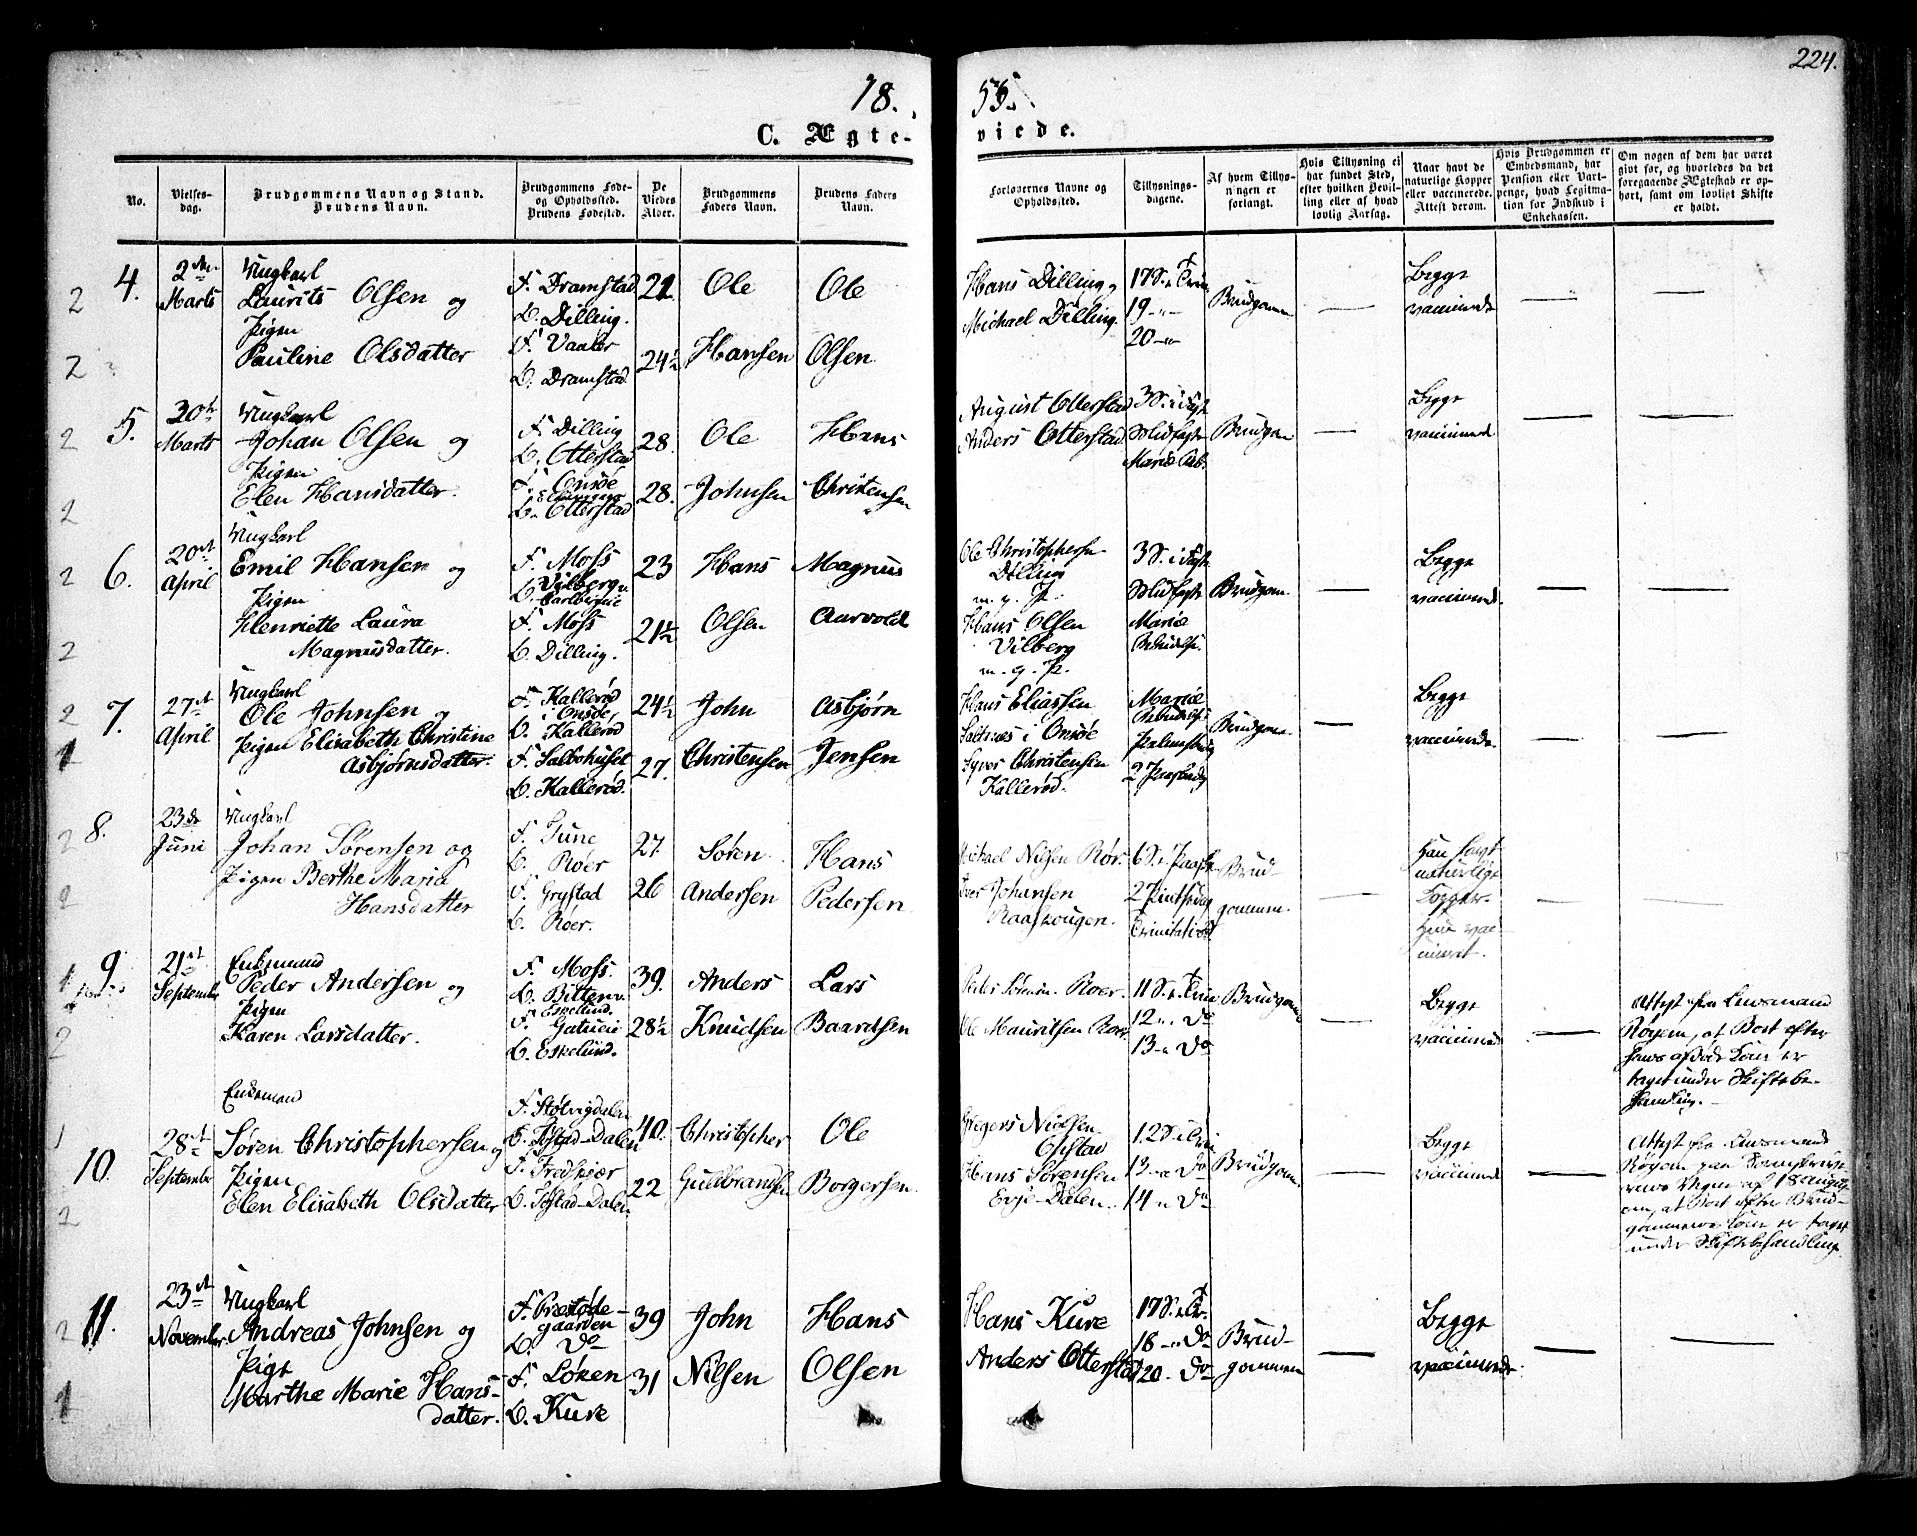 224.
18. 55.
C. Ægte- viede.
No.
Vielses-
dag.
Brudgommens Navn og Stand.
Brudens Navn.
Brudgommens Føde-
og Opholdssted.
Brudens Fødested.
De
Viedes
Alder.
Brudgommens
Faders Navn.
Brudens Faders
Navn.
Forlovernes Navne og
Opholdssted.
Tillysnings-
dagene.
Af hvem Tillys-
ningen er
forlangt.
Hvis Tillysning ei
har fundet Sted,
efter hvilken Bevil-
ling eller af hvad
lovlig Aarsag.
Naar havt de
naturlige Kopper
eller vaccinerede.
Attest derom.
Hvis Brudgommen er
Embedsmand, har
Pension eller Vart-
penge, hvad Legitima-
tion for Indskud i
Enkekassen.
Om nogen af dem har været
givt før, og hvorledes da det
foregaaende Ægteskab er op-
hørt, samt om lovligt Skifte
er holdt.
4.
Marts
Ungkarl
Laurits Olsen og
Pigen
Pauline Olsdatter
F. Dramstad
B. Dilling.
F. Vaaler
B. Dramstad
24½
Ole
Hansen
Ole
Olsen
Hans Dilling
Michael Dilling.
17 S. e. Trin
19 -"-
20 -"-
Brudgom
—
Begge
vaccinerede
— —
5.
30te
Marts
Ungkarl
Johan Olsen og
Pigen
Elen Hansdatter.
F. Dilling
B. Otterstad
F. Onsøe
B. Otterstad
28
28.
Ole
Johnsen
Hans
Christensen
August Otterstad
Anders Otterstad
3 S. i Fast
Midfaste
Mariæ Beb.
Brudgom
—
Begge
vaccinerede
— —
6.
20de
April
Ungkarl
Emil Hansen og
Pigen
Henriette Laura
Magnusdatter.
F. Moss
B. Vilberg
F. Moss
B. Dilling.
23
21½
Hans
Olsen
Magnus
Aarvold
Ole Christophersen
Dilling
m. g. P.
Hans Olsen
Vilberg
m. g. P.
3 S. i Faste
Midfaste
Mariæ
Bebudelse.
Brudgom.
—
Begge
vaccinerede.
— —
7.
27de
April
Ungkarl
Ole Johnsen og
Pigen Elisabeth Christine
Asbjørnsdatter.
F. Kallerød
i Onsøe,
B. Kallerød
F. Saltbohuset
B. Kallerød.
24½
27.
John
Christensen
Asbjørn
Jensen
Hans Eliassen
Saltnes i Onsøe
Syver Christensen
Kallerød.
Mariæ
Bebudelse
Palmesøndag
2 Paaskedag
Brudgom
—
Begge
vaccinerede.
— —
8.
23de
Juni
Ungkarl
Johan Sørensen og
Pigen Berthe Maria
Hansdatter
F. Tune
B. Roer
F. Grystad
B. Roer.
27
26
Søren
Andersen
Hans
Pedersen
Michael Nilsen Rør.
Iver Johansen
Raaskougen.
6 S. e. Paaske
2 Pintsedag
Trinitatis
Brud-
gommen.
—
Han havt
naturlige
Kopper.
Hun vac-
cineret.
— —
9.
21de
September
Enkemand
Peder Andersen og
Pigen
Karen Larsdatter.
F. Moss.
B. Bitteru.
Eskelund.
F. Gatueie
B. Eskelund.
39.
28½
Anders
Knudsen
Lars
Baardsen
Peder Sørensen Roer.
Ole Mauritsen Roer
11 S. e. Trin
12 " Do
13 " Do
Brudgom
—
Begge
vaccinerede
—
Attest fra Lensmand
Røyem, at Boet efter
hans afdøde Kone er
taget under Skiftebe-
handling.
10.
28de
September
Enkemand
Søren Christophersen og
Pigen
Elen Elisabeth Olsdatter
F. Støtvigdalen
B. Tofstad-Dalen
F. Fredskjær
B. Tofstad-Dalen
40.
22
Christopher
Guldbrandsen
Ole
Borgersen.
Nielsen
Opstad
Hans Sørensen
Evje-Dalen.
12 S. e. Trin
13 -"- Do
14 " Do
Brudgom.
—
Begge
vaccinerede
—
Attest fra Lensmand
Røyem paa
vegne af 18 August
om, at Boet efter Brud-
gommens Kone er taget
under Skiftebehandling.
11.
23de
November.
Ungkarl
Andreas Johnsen og
Pige
Marthe Marie Hans-
datter.
F. Præstøde-
gaarden
B. Do
F. Løken
B. Kure
39
31
John
Nilsen
Hans
Olsen
Hans Kure
Anders Otterstad
17 S. e. Tr.
18 -"- Do
20 - Do
Brud-
gommen
—
Begge
vaccinerede.
— —